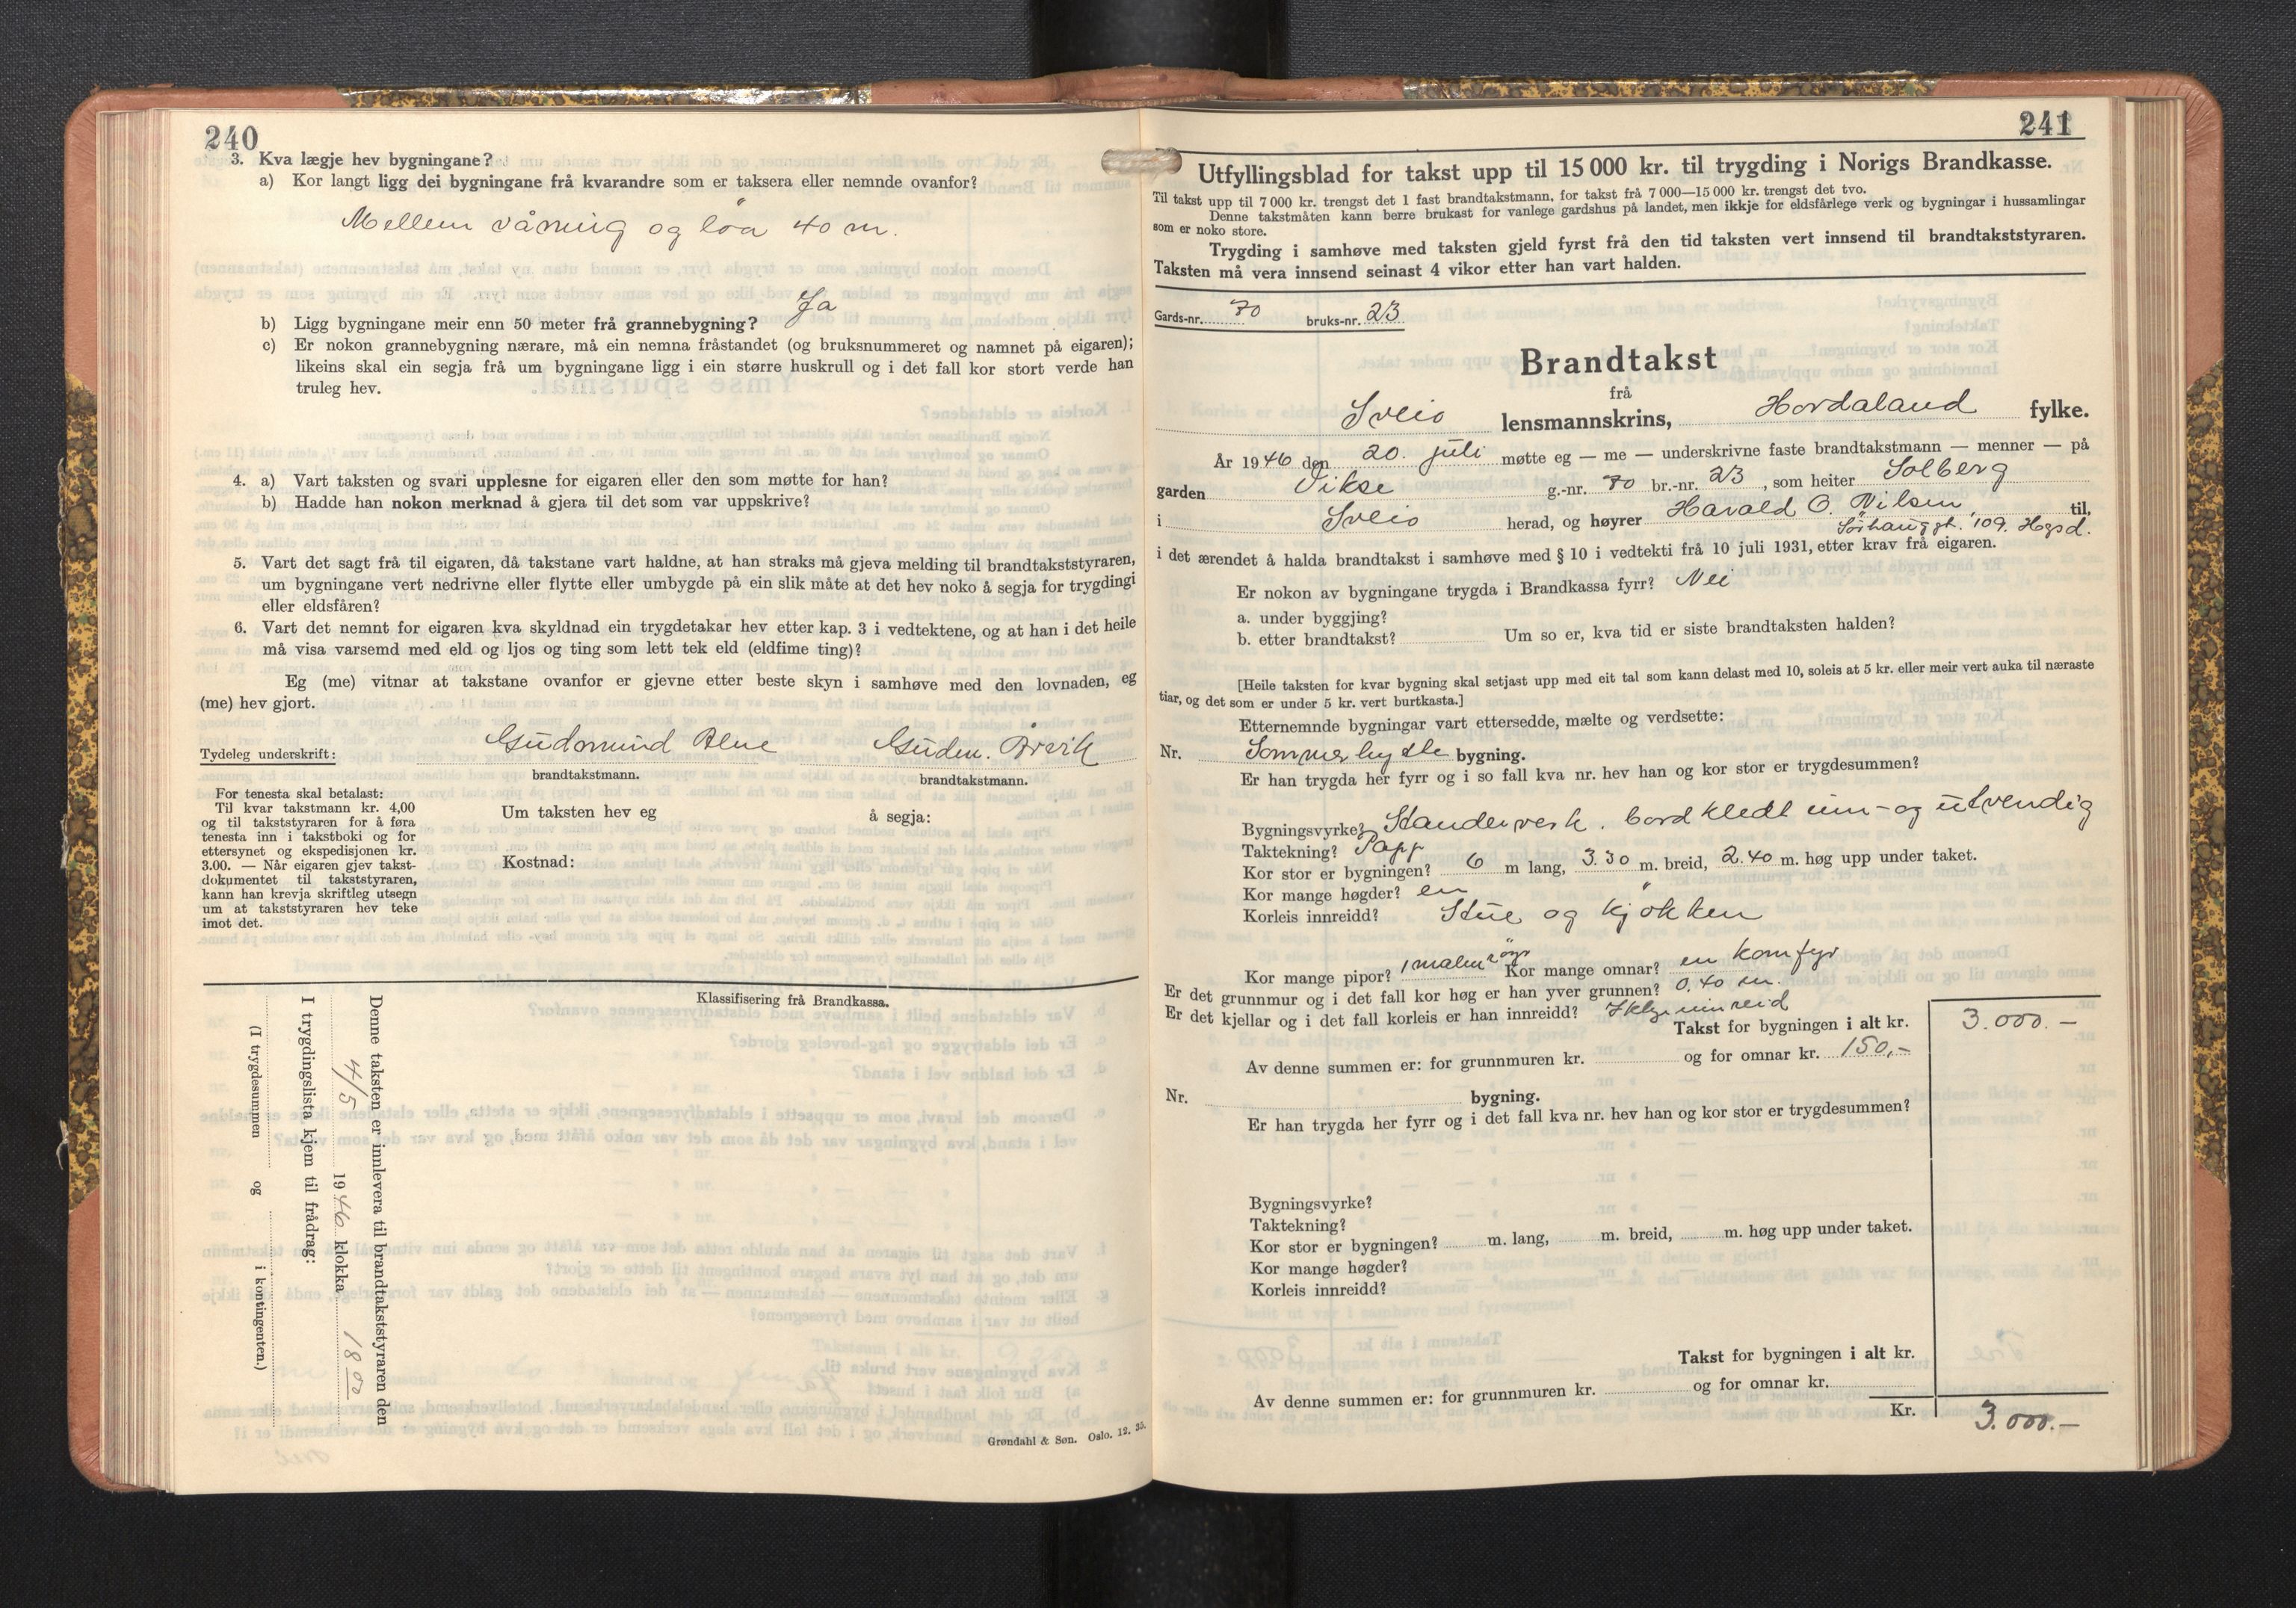 240
3. Kva lægje hev bygningane?
a) Kor langt ligg dei bygningane frå kvarandre som er taksera eller nemnde ovanfor?
Mellem våning og löa 40 m.
b) Ligg bygningane meir enn 50 meter frå grannebygning? Ja
c) Er nokon grannebygning nærare, må ein nemna fråstandet (og bruksnummeret og namnet på eigaren);
likeins skal ein segja frå um bygningane ligg i ein større huskrull og i det fall kor stort verde han
truleg hev.
4. a) Vart taksten og svari upplesne for eigaren eller den som møtte for han?
b) Hadde han nokon merknad å gjera til det som var uppskrive?
5. Vart det sagt frå til eigaren, då takstane vart haldne, at han straks må gjeva melding til brandtakststyraren,
um bygningane vert nedrivne eller flytte eller umbygde på ein slik måte at det hev noko å segja for trygdingi
eller eldsfåren?
6. Vart det nemnt for eigaren kva skyldnad ein trygdetakar hev etter kap. 3 i vedtektene, og at han i det heile
må visa varsemd med eld og ljos og ting som lett tek eld (eldfime ting)?
Eg (me) vitnar at takstane ovanfor er gjevne etter beste skyn i samhøve med den lovnaden, eg
(me) hev gjort.
Tydeleg underskrift: Gudmund Alne Gudm. Arvik
brandtakstmann. brandtakstmann.
For tenesta skal betalast:
Til kvar takstmann kr. 4,00
og til takststyraren for å føra
tenesta inn i takstboki og for
ettersynet og ekspedisjonen kr.
3.00. — Når eigaren gjev takst-
dokumentet til takststyraren,
kann han krevja skriftleg utsegn
um at takststyraren hev teke
imot det.
Um taksten hev eg å segja:
Kostnad:
Klassifisering frå Brandkassa.
Denne taksten er innlevera til brandtakststyraren den
4/5 1946 klokka 18 00
I trygdingslista kjem til frådrag:
(I trygdesummen og i kontingenten.)
Grøndahl & Søn. Oslo. 12. 35.
241
Utfyllingsblad for takst upp til 15 000 kr. til trygding i Norigs Brandkasse.
Til takst upp til 7 000 kr. trengst det 1 fast brandtakstmann, for takst frå 7 000—15 000 kr. trengst det tvo.
Denne takstmåten kann berre brukast for vanlege gardshus på landet, men ikkje for eldsfårlege verk og bygningar i hussamlingar
som er noko store.
Trygding i samhøve med taksten gjeld fyrst frå den tid taksten vert innsend til brandtakststyraren.
Taksten må vera innsend seinast 4 vikor etter han vart halden.
Gards-nr. 70 bruks-nr. 23
Brandtakst
frå
Sveio lensmannskrins, Hordaland fylke.
År 1946 den 20. juli møtte eg — me — underskrivne faste brandtakstmann — menner — på
garden Vikse g.-nr. 70 br.-nr. 23, som heiter Solberg
i Sveio herad, og høyrer Harald O. Nilsen, til,
Sörhauggt. 109. Hgsd.
i det ærendet å halda brandtakst i samhøve med § 10 i vedtekti frå 10 juli 1931, etter krav frå eigaren.
Er nokon av bygningane trygda i Brandkassa fyrr? Nei
a. under byggjing?
b. etter brandtakst? Um so er, kva tid er siste brandtaksten halden?
[Heile taksten for kvar bygning skal setjast upp med eit tal som kann delast med 10, soleis at 5 kr. eller meir vert auka til næraste
tiar, og det som er under 5 kr. vert burtkasta.]
Etternemnde bygningar vart ettersedde, mælte og verdsette:
Nr. Sommerhytte bygning.
Er han trygda her fyrr og i so fall kva nr. hev han og kor stor er trygdesummen?
Bygningsvyrke? Standerverk. bordkledt inn- og utvendig
Taktekning? Papp
Kor stor er bygningen? 6 m lang, 3.30 m. breid, 2.40 m. høg upp under taket.
Kor mange høgder? en
Korleis innreidd? Stue og kjökken
Kor mange pipor? 1 malmrör Kor mange omnar? en komfyr
Er det grunnmur og i det fall kor høg er han yver grunnen? 0.40 m.
Er det kjellar og i det fall korleis er han innreidd? Ikkje innreid
Takst for bygningen i alt kr. 3.000.—
Av denne summen er: for grunnmuren kr. og for omnar kr. 150,-
Nr. bygning.
Er han trygda her fyrr og i det fall kva nr. hev han og kor stor er trygdesummen?
Bygningsvyrke?
Taktekning?
Kor stor er bygningen? m. lang, m. breid, m. høg upp under taket.
Kor mange høgder?
Korleis innreidd?
Takst for bygningen i alt kr.
Av denne summen er: for grunnmuren kr. og for omnar kr.
Kr. 3.000.—